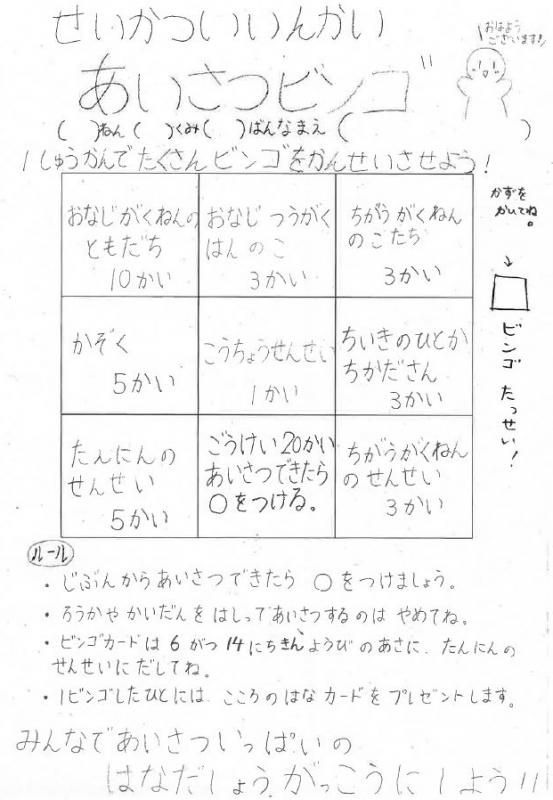 せいかついいんかい
おはよう
ございます!
あいさつビンゴ
(　)ねん(　)くみ(　)ばんなまえ(　　　)
1しゅうかんでたくさんビンゴをかんせいさせよう!
おなじがくねんの
ともだち
10かい
おなじつうがく
はんのこ
3かい
ちがうがくねん
のこたち
3かい
かぞく
5かい
こうちょうせんせい
1かい
ちいきのひとか
ちかださん
3かい
たんにんの
せんせい
5かい
ごうけい20かい
あいさつできたら
○をつける。
ちがうがくねん
のせんせい
3かい
かずを
かいてね。
↓
ビンゴたっせい!
ルール
・じぶんからあいさつできたら ○をつけましょう。
・ろうかやかいだんをはしってあいさつするのは やめてね。
・ビンゴカードは6がつ14にちきんようびのあさに、たんにんの
せんせいにだしてね。
・1ビンゴしたひとには、こころのはなカードをプレゼントします。
みんなであいさついっぱいの
はなだしょうがっこうにしよう!!